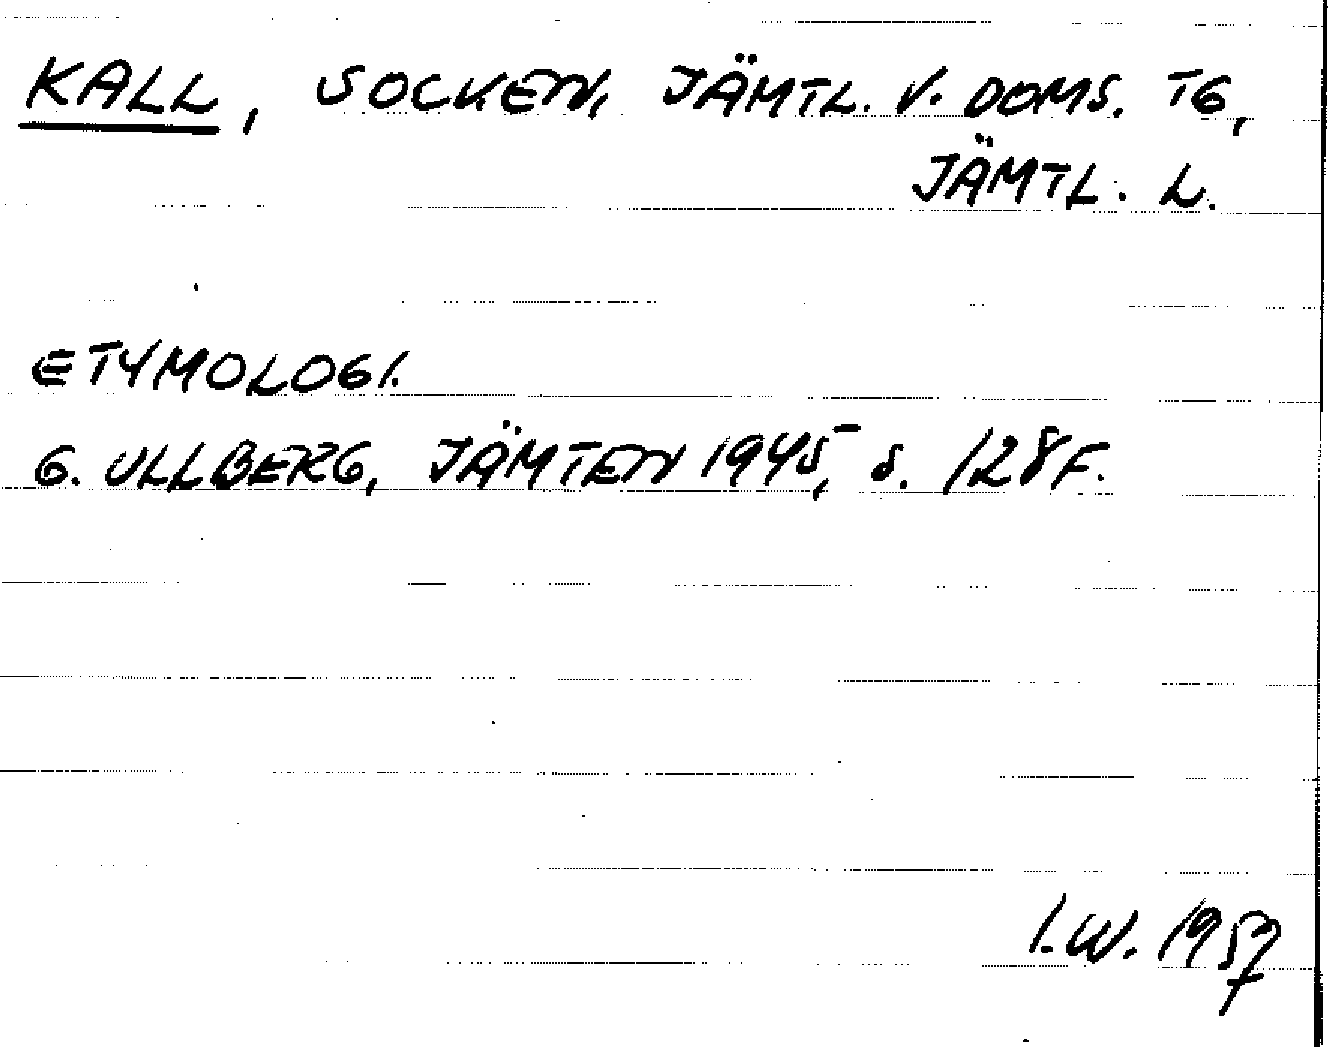 KALL, SOCKEN, JÄMTL. V. DOMS. TG,
JÄMTL. L.
ETYMOLOGI.
G. ULLBERG, JÄMTEN 1945, s. 128 F.
I.W. 1957